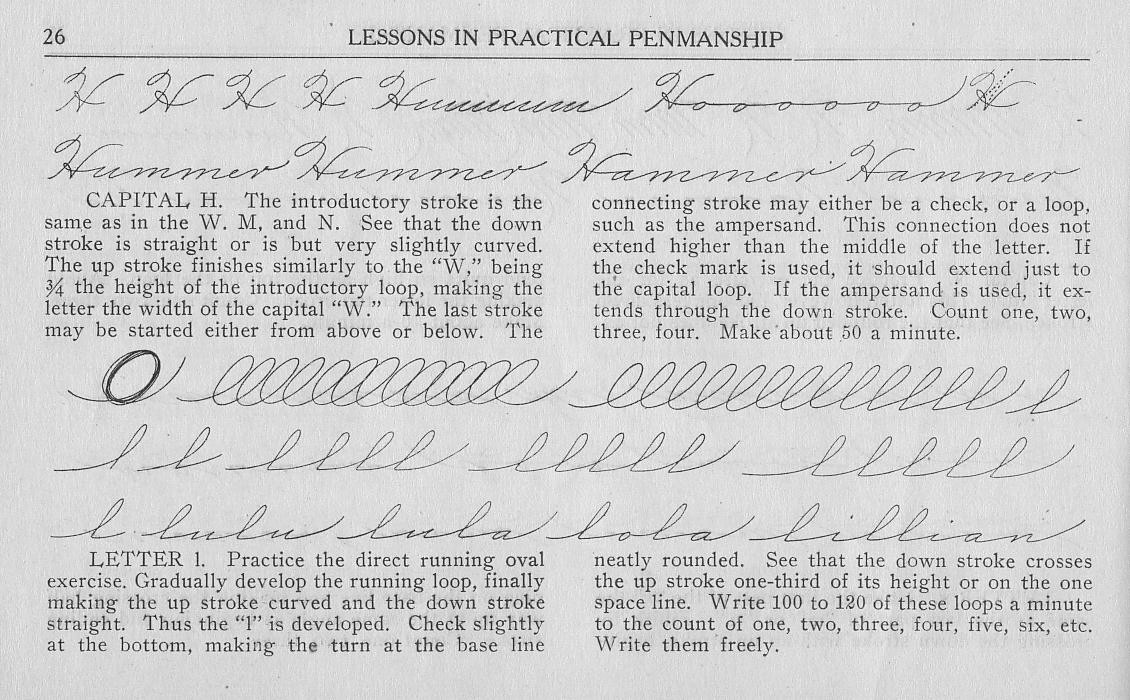 26
LESSONS IN PRACTICAL PENMANSHIP
H H H H Huuuuuu Hooooooo H
Hummer Hummer Hammer Hammer
CAPITAL H. The introductory stroke is the
same as in the W. M, and N. See that the down
stroke is straight or is but very slightly curved.
The up stroke finishes similarly to the “W,” being
¾ the height of the introductory loop, making the
letter the width of the capital “W.” The last stroke
may be started either from above or below. The
connecting stroke may either be a check, or a loop,
such as the ampersand. This connection does not
extend higher than the middle of the letter. If
the check mark is used, it should extend just to
the capital loop. If the ampersand is used, it ex-
tends through the down stroke. Count one, two,
three, four. Make about 50 a minute.
l
l l llll lllll lllll
l lulu lula lola lillian
LETTER l. Practice the direct running oval
exercise. Gradually develop the running loop, finally
making the up stroke curved and the down stroke
straight. Thus the “l” is developed. Check slightly
at the bottom, making the turn at the base line
neatly rounded. See that the down stroke crosses
the up stroke one-third of its height or on the one
space line. Write 100 to 120 of these loops a minute
to the count of one, two, three, four, five, six, etc.
Write them freely.